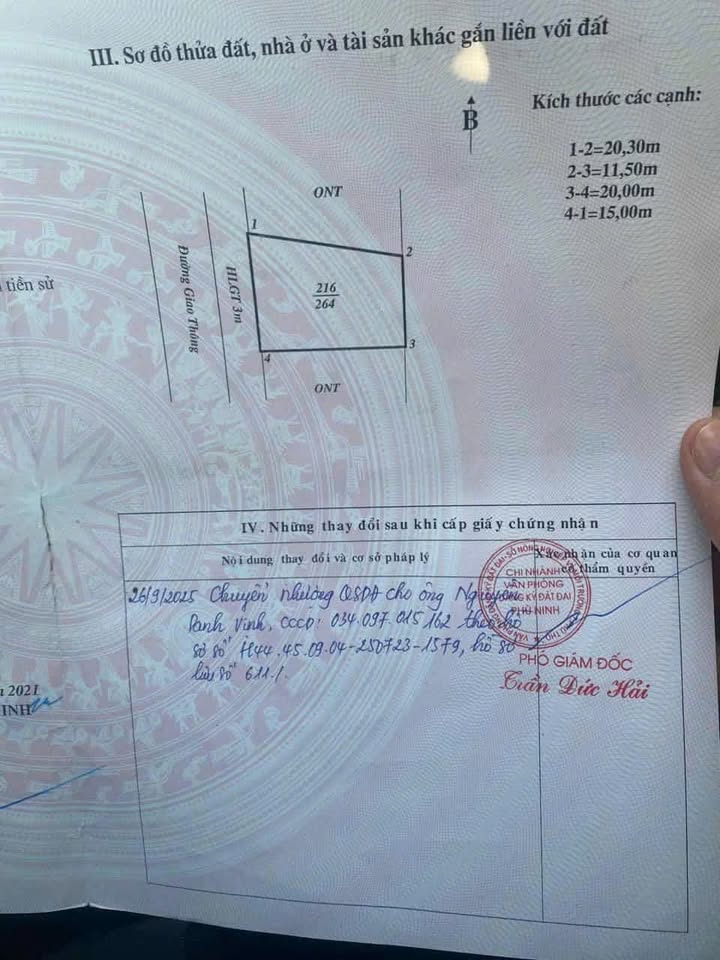 III. Sơ đồ thửa đất, nhà ở và tài sản khác gắn liền với đất
B
Kích thước các cạnh:
1-2=20,30m
2-3=11,50m
3-4=20,00m
4-1=15,00m
ONT
1
2
216
264
Đường Giao Thông
HLGT 3m
4
3
ONT
tiền sử
IV. Những thay đổi sau khi cấp giấy chứng nhận
Nội dung thay đổi và cơ sở pháp lý
Xác nhận của cơ quan
có thẩm quyền
26/9/2025 Chuyển nhượng QSDĐ cho ông Nguyễn
Danh Vinh, CCCD: 034.097.015162 theo hồ
sơ số H44.45.09.04-250723-1579, hồ sơ
lưu số 611./.
CHI NHÁNH
VĂN PHÒNG
ĐĂNG KÝ ĐẤT ĐAI
PHÙ NINH
PHÓ GIÁM ĐỐC
Trần Đức Hải
2021
INH